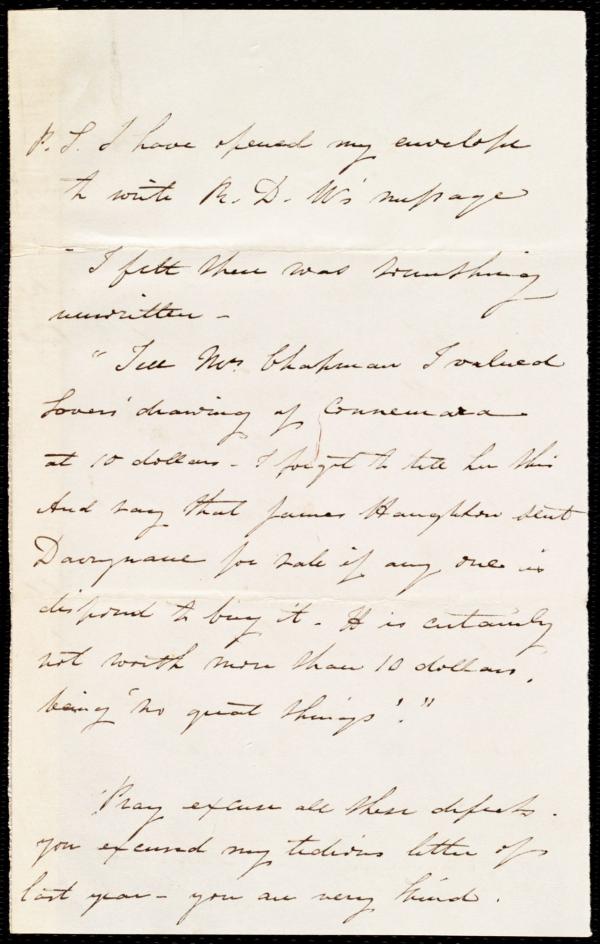 P. S. I have opened my envelope
to write R. D. W's message
I felt there was something
unwritten -
"Tell Mrs. Chapman I valued
Lovers' drawing of Connemara
at 10 dollars - I forgot to tell her this
And say that James Haughton sent
Darrynane for sale if any one is
disposed to buy it. It is certainly
not worth more than 10 dollars,
being 'no great things'."
Pray excuse all these defects.
you excused my tedious letter of
last year - you are very kind.